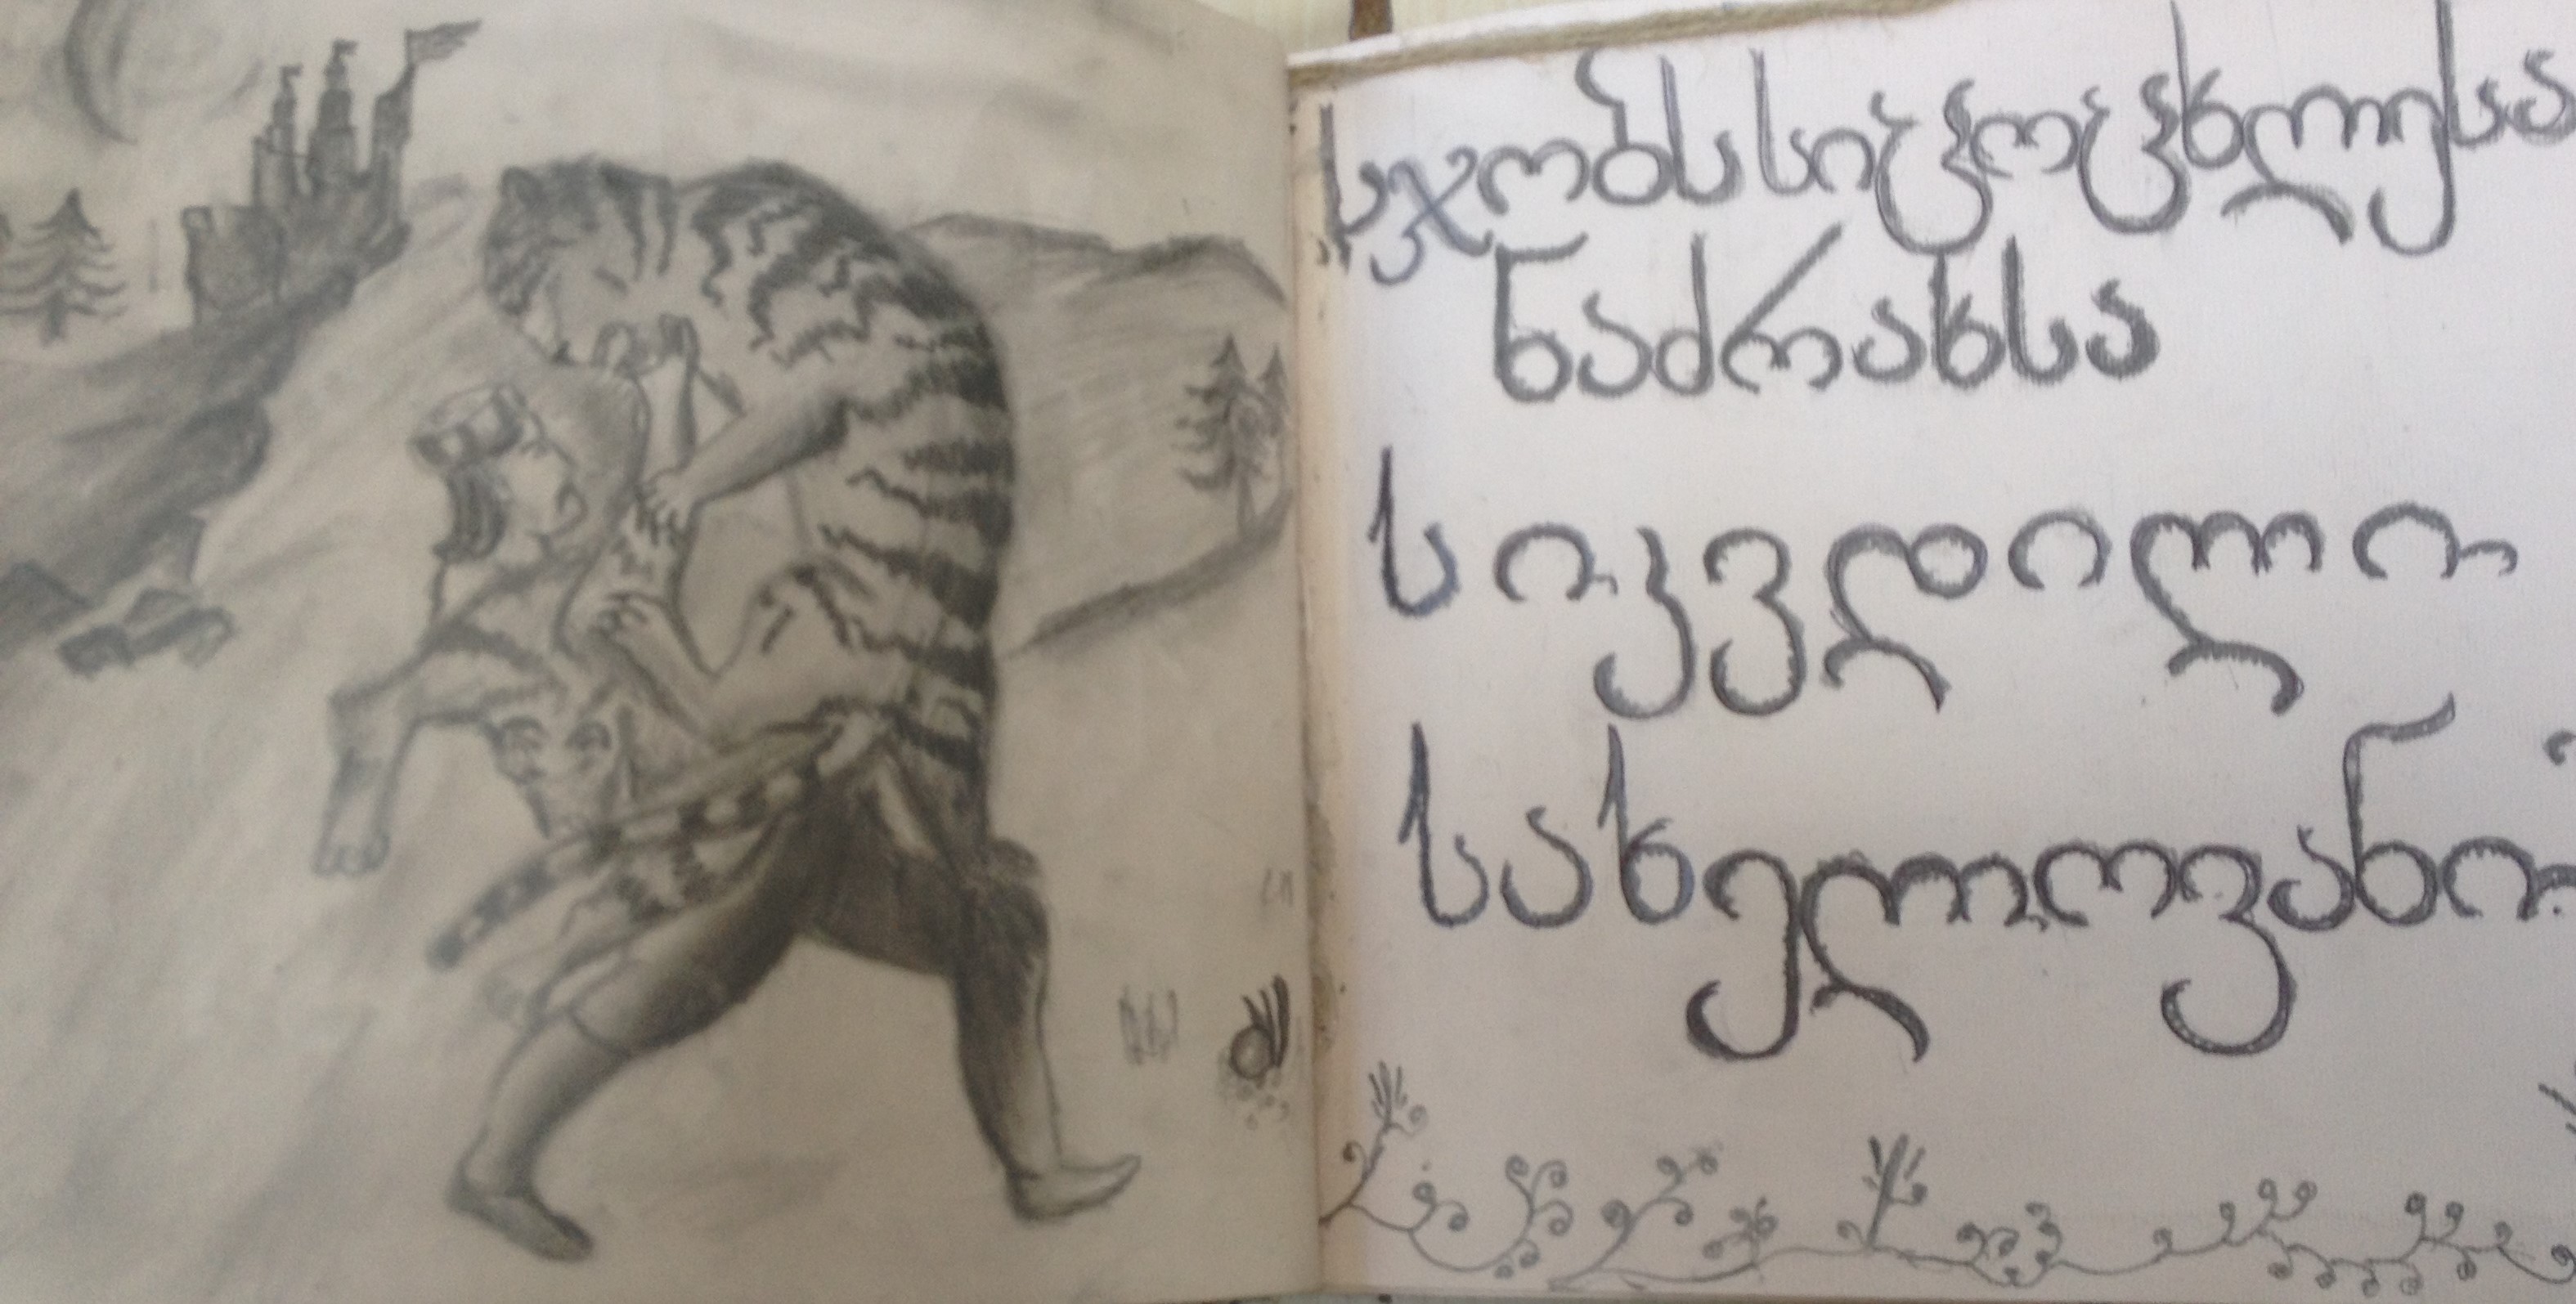 სჯობს სიცოცხლესა
ნაძრახსა
სიკვდილი
სახელოვანი